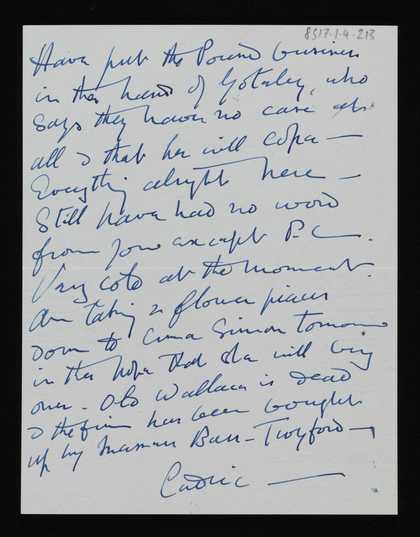 8317.1.4.213
Have put the Pound business
in the hands of Gotsley, who
says they have no case at
all & that he will cope —
Everything alright here —
Still have had no word
from you except P.C.
Very cold at the moment.
Am taking 2 flower pieces
down to Simon tomorrow
in the hope that she will buy
one. Old Wallace is dead
& the firm has been bought
up by Barr-Twyford —
Cedric —